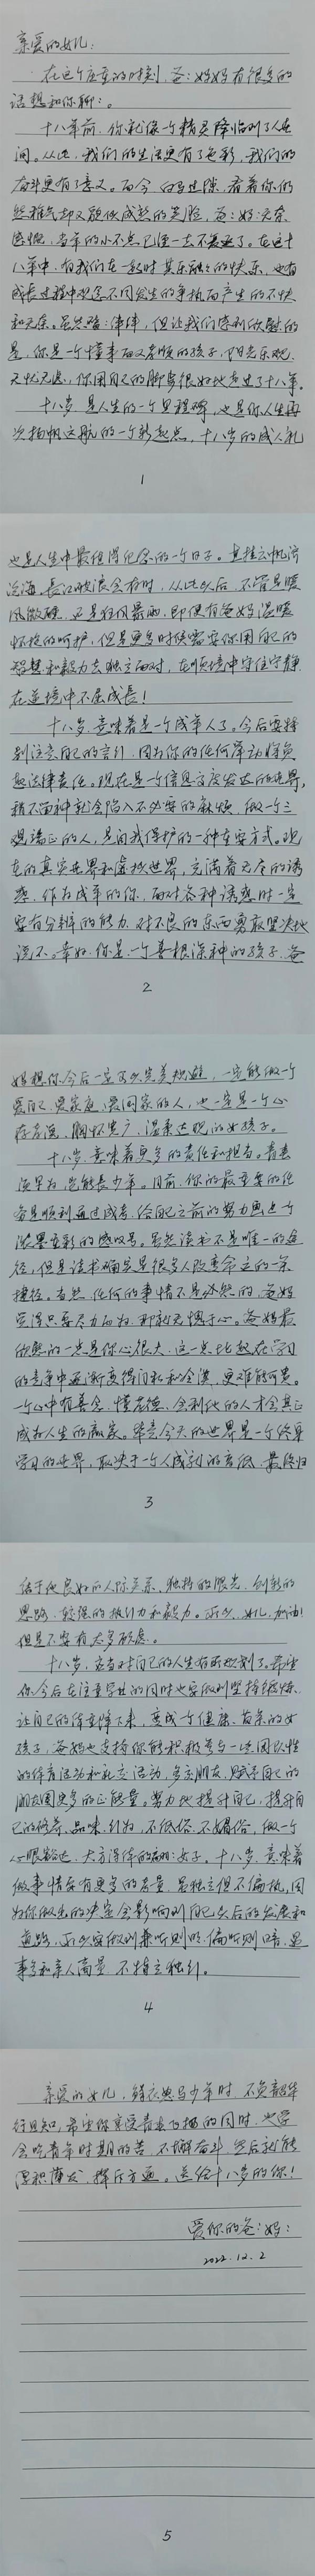 亲爱的女儿:
在这个庄重的时刻,爸:妈妈有很多的
话想和你聊:。
十八年前,你就像一个精灵降临到了人世
间。从此,我们的生活更有了色彩,我们的
奋斗更有了意义。而今,白驹过隙,看着你仍
然稚气却又貌似成熟的笑脸,爸:妈:
感慨,当年的小不点已经一去不复返了。在这十
八年中,有我们在一起时其乐融融的快乐,也有
成长过程中观念不同发生的争执而产生的不快
和无奈。虽然磕:绊绊,但让我们感到欣慰的
是,你是一个懂事而又孝顺的孩子,阳光乐观,
无忧无虑,你用自己的脚步很好地走过了十八年。
十八岁,是人生的一个里程碑,也是你人生再
次扬帆远航的一个新起点,十八岁的成人礼
1
也是人生中最值得纪念的一个日子。直挂云帆济
沧海,长风破浪会有时,从此以后,不管是暖
风微硬,还是狂风暴雨,即便有爸妈温暖
怀抱的呵护,但是更多时候需要你用自己的
智慧和毅力去独立面对,在顺境中守住宁静,
在逆境中不屈成长!
十八岁,意味着是一个成年人了。今后要特
别注意自己的言行,因为你的任何举动将负
起法律责任。现在是一个信息高度发达的世界,
稍不留神就会陷入不必要的麻烦,做一个三
观端正的人,是自我保护的一种重要方式。现
在的真实世界和虚拟世界,充满着无尽的诱
惑,作为成年的你,面对各种诱惑时一定
要有分辨的能力,对不良的东西勇敢坚决地
说不。幸好,你是一个善根深种的孩子,爸
2
妈想你今后一定可以完美规避,一定能做一个
爱自己、爱家庭、爱国家的人,也一定是一个心
存善念,胸怀宽广,温柔达观的女孩子。
十八岁,意味着更多的责任和担当。青春
须早为,岂能长少年。目前,你的最重要的任
务是顺利通过高考,给自己之前的努力画上一个
浓墨重彩的感叹号。虽然读书不是唯一的途
径,但是读书确实是很多人改变命运的一条
捷径。当然,任何的事情不是必然的,爸妈
觉得只要尽力而为,那就无愧于心。爸妈最
欣慰的一点是你心很大,这一点比起在学习
的竞争中逐渐变得自私和冷漠,更难能可贵。
一个心中有善念,懂孝德,会利他的人才会真正
成为人生的赢家。毕竟今天的世界是一个终身
学习的世界,取决于一个人成就的高低,最终归
3
结于他良好的人际关系、独特的眼光、创新的
思路、较强的执行力和毅力。所以,女儿,加油!
但是不要有太多顾虑。
十八岁,应当对自己的人生有所规划了。希望
你今后在注重学业的同时也要做到坚持锻炼,
让自己的体重降下来,变成一个健康、自信的女
孩子,爸妈也支持你能积极参与一些团队性
的体育活动和社交活动,多交朋友,赋予自己的
朋友圈更多的正能量。努力地提升自己,提升自
己的修养、品味、行为,不低俗,不媚俗,做一个
心眼豁达、大方得体的女子。十八岁,意味着
做事情应有更多的考量,要独立但不偏执,因
为你做出的决定会影响到自己以后的发展和
道路,所以要做到兼听则明,偏听则暗,遇
事多和亲人商量,不特立独行。
4
亲爱的女儿,鲜衣怒马少年时,不负韶华
行且知,希望你享受青春飞扬的同时,也学
会吃青年时期的苦,不懈奋斗,然后就能
厚积薄发,挥斥方遒。送给十八岁的你!
爱你的爸:妈:
2022.12.2
5